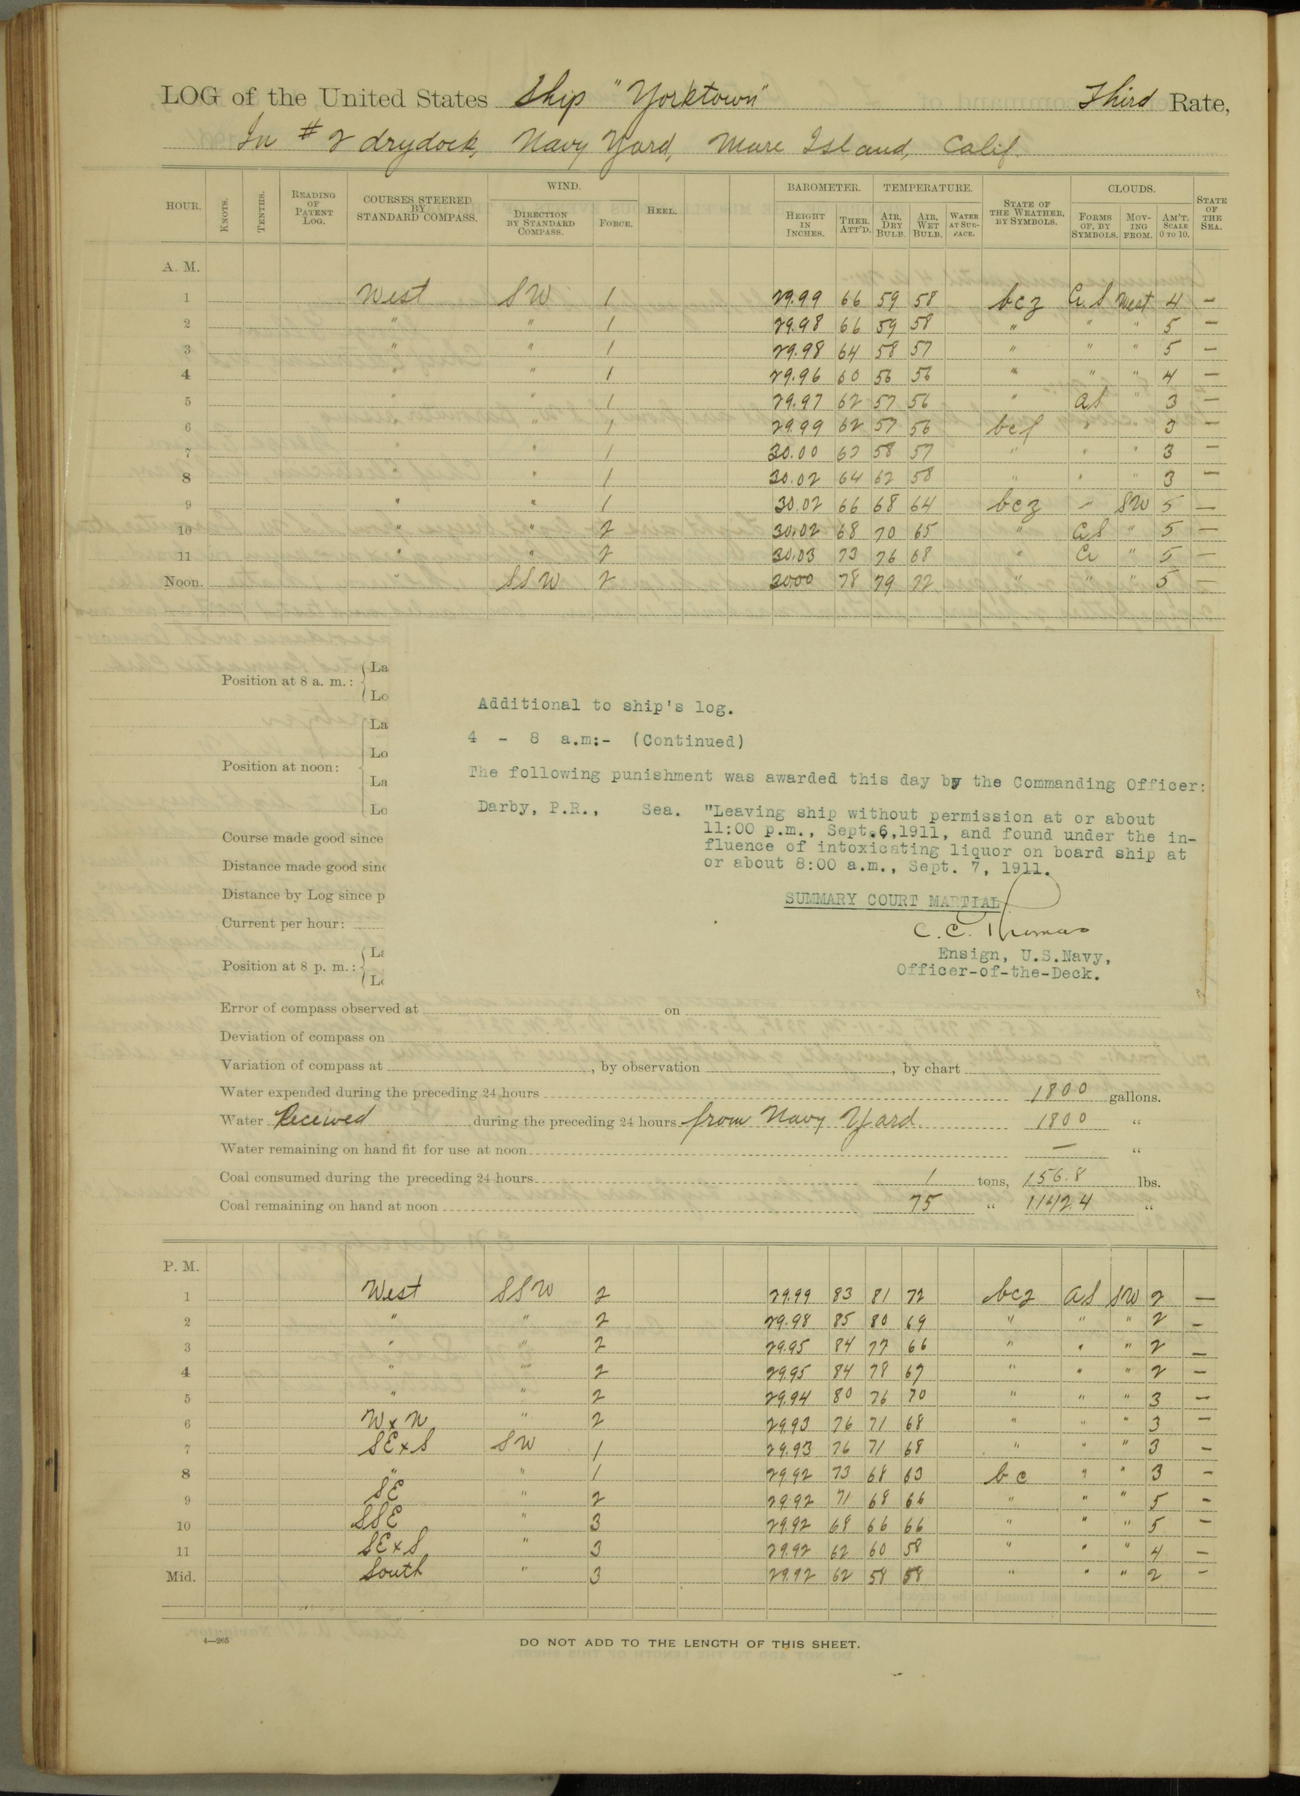 LOG of the United States Ship "Yorktown" Third Rate,
In # 2 drydock, Navy Yard, Mare Island, Calif.
HOUR. KNOTS. TENTHS. READING OF PATENT LOG. COURSES STEERED BY STANDARD COMPASS. WIND. DIRECTION BY STANDARD COMPASS. FORCE. HEEL. BAROMETER. HEIGHT IN INCHES. THER. ATT'D. TEMPERATURE. AIR, DRY BULB. AIR, WET BULB. WATER AT SUR-FACE. STATE OF THE WEATHER, BY SYMBOLS. CLOUDS. FORMS OF, BY SYMBOLS. MOV-ING FROM. AM'T. SCALE 0 TO 10. STATE OF THE SEA.
A. M.
1 West SW 1 29.99 66 59 58 bcz Ci S West 4 —
2 " " 1 29.98 66 59 58 " " " 5 —
3 " " 1 29.98 64 58 57 " " " 5 —
4 " " 1 29.96 60 56 56 " " " 4 —
5 " " 1 29.97 62 57 56 " aS " 3 —
6 " " 1 29.99 62 57 56 bcf " " 3 —
7 " " 1 30.00 62 58 57 " " " 3 —
8 " 1 30.02 64 62 58 " " " 3 —
9 " " 1 30.02 66 68 64 bcz " SW 5 —
10 " " 2 30.02 68 70 65 " Ci S " 5 —
11 " " 2 30.03 73 76 68 " Ci " 5 —
Noon. " SSW 2 3000 78 79 72 " " " 5 —
Position at 8 a. m.: La
Lo
Position at noon: La
Lo
La
Lo
Course made good since
Distance made good sinc
Distance by Log since p
Current per hour:
Position at 8 p. m.: La
Lo
Additional to ship's log.
4 - 8 a.m:- (Continued)
The following punishment was awarded this day by the Commanding Officer:
Darby, P.R., Sea. "Leaving ship without permission at or about
11:00 p.m., Sept.6,1911, and found under the in-
fluence of intoxicating liquor on board ship at
or about 8:00 a.m., Sept. 7, 1911.
SUMMARY COURT MARTIAL
C. C. Thomas
Ensign, U.S.Navy,
Officer-of-the-Deck.
Error of compass observed at on
Deviation of compass on
Variation of compass at , by observation , by chart
Water expended during the preceding 24 hours 1800 gallons.
Water Received during the preceding 24 hours from Navy Yard 1800 "
Water remaining on hand fit for use at noon — "
Coal consumed during the preceding 24 hours 1 tons, 156.8 lbs.
Coal remaining on hand at noon 75 " 1142.4 "
P. M.
1 West SSW 2 29.99 83 81 72 bcz aS SW 2 —
2 " " 2 29.98 85 80 69 " " " 2 —
3 " " 2 29.95 84 77 66 " " " 2 —
4 " " 2 29.95 84 78 67 " " " 2 —
5 " " 2 29.94 80 76 70 " " " 3 —
6 W x N " 2 29.93 76 71 68 " " " 3 —
7 SE x S SW 1 29.93 76 71 68 " " " 3 —
8 " " 1 29.92 73 68 63 bc " " 3 —
9 SE " 2 29.92 71 68 66 " " " 5 —
10 SSE " 3 29.92 68 66 66 " " " 5 —
11 SE x S " 3 29.92 62 60 58 " " " 4 —
Mid. South " 3 29.92 62 58 58 " " " 2 —
4—265
DO NOT ADD TO THE LENGTH OF THIS SHEET.